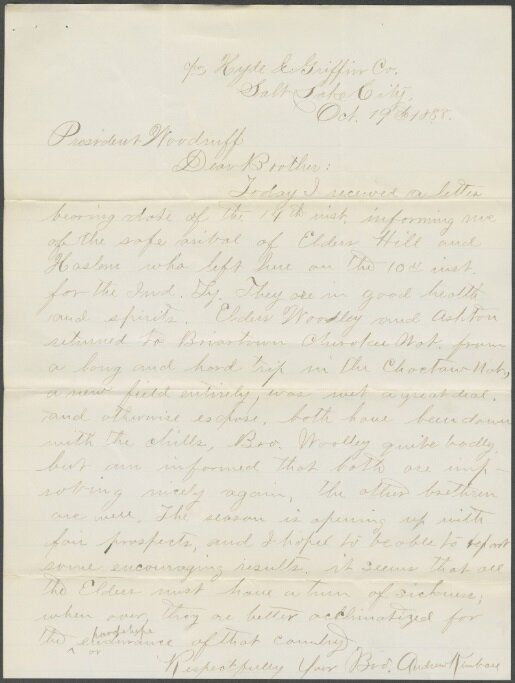 c/o Hyde & Griffin Co.
Salt Lake City,
Oct. 19th 1888.
President Woodruff
Dear Brother:
Today I received a letter
bearing date of the 14th inst. informing me
of the safe arival of Elders Hill and
Haslem who left here on the 10th inst.
for the Ind. Ty. They are in good health
and spirits. Elders Woolley and Ashton
returned to Briartown Cherokee Nat. from
a long and hard trip in the Choctaw Nat,
a new field entirely, was wet a great deal,
and otherwise expose, both have been down
with the chills, Bro. Woolley quite badly
but am informed that both are imp-
roving nicely again, the other brethren
are well. The season is opening up with
fair prospects, and I hope to be able to report
some encouraging results. it seems that all
the Elders must have a turn of sickness;
when over, they are better acclimatized for
the endurance of that country
hardships
or
Respectfully Your Bro. Andrew Kimball